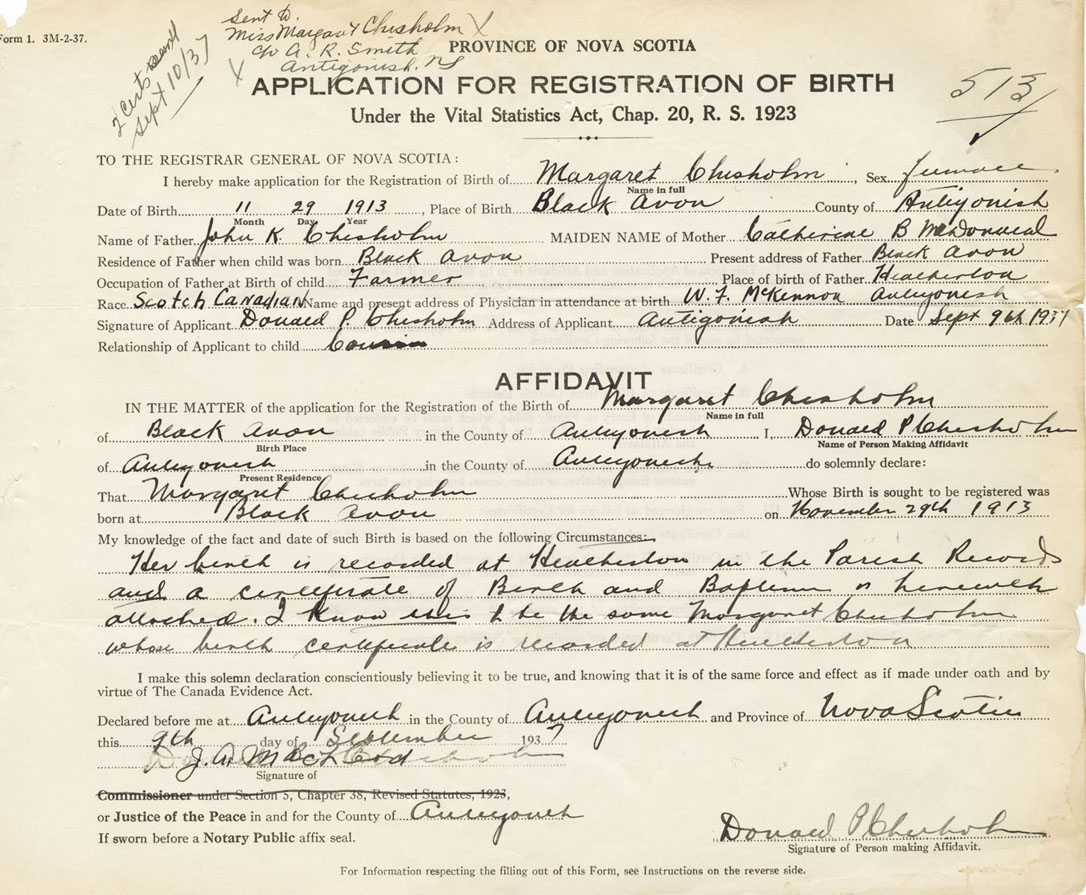 Form 1. 3M-2-37.
2 Certs send
Sept 10/37
Sent to
Miss Margaret Chisholm X
c/o A. R. Smith
X Antigonish. NS
PROVINCE OF NOVA SCOTIA
APPLICATION FOR REGISTRATION OF BIRTH
513
Under the Vital Statistics Act, Chap. 20, R. S. 1923
TO THE REGISTRAR GENERAL OF NOVA SCOTIA:
I hereby make application for the Registration of Birth of Margaret Chisholm, Sex female
Name in full
Date of Birth 11 29 1913, Place of Birth Black Avon County of Antigonish
Month Day Year
Name of Father John K. Chisholm MAIDEN NAME of Mother Catherine B McDonald
Residence of Father when child was born Black Avon Present address of Father Black Avon
Occupation of Father at Birth of child Farmer Place of birth of Father Heatherton
Race Scotch Canadian Name and present address of Physician in attendance at birth W. F. McKinnon Antigonish
Signature of Applicant Donald P. Chisholm Address of Applicant Antigonish Date Sept 9th 1937
Relationship of Applicant to child Cousin
AFFIDAVIT
IN THE MATTER of the application for the Registration of the Birth of Margaret Chisholm
Name in full
of Black Avon in the County of Antigonish I, Donald P Chisholm
Birth Place Name of Person Making Affidavit
of Antigonish in the County of Antigonish do solemnly declare:
Present Residence
That Margaret Chisholm Whose Birth is sought to be registered was
born at Black Avon on November 29th 1913
My knowledge of the fact and date of such Birth is based on the following Circumstances:
Her birth is recorded at Heatherton in the Parish Records
and a certificate of Birth and Baptism is herewith
attached. I know this to be the same Margaret Chisholm
whose birth certificate is recorded at Heatherton
I make this solemn declaration conscientiously believing it to be true, and knowing that it is of the same force and effect as if made under oath and by
virtue of The Canada Evidence Act.
Declared before me at Antigonish in the County of Antigonish and Province of Nova Scotia
this 9th day of September 1937
J. A. 
Signature of
Commissioner under Section 5, Chapter 38, Revised Statutes, 1923,
or Justice of the Peace in and for the County of Antigonish
If sworn before a Notary Public affix seal.
Donald P Chisholm
Signature of Person making Affidavit.
For Information respecting the filling out of this Form, see Instructions on the reverse side.